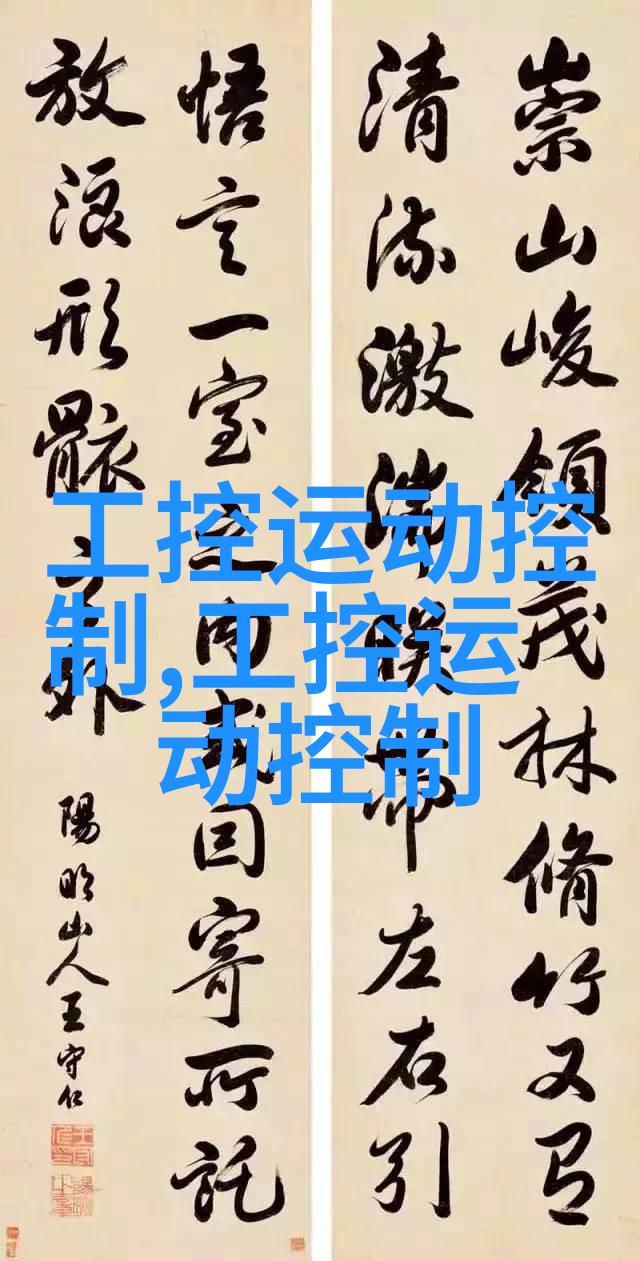 崇山峻領茂林脩竹又有
清流激湍暎帶左右引
悟言一室之内或因寄所託
放浪形骸之外
陽明山人王守仁
工控运动控
制,工控运
动控制